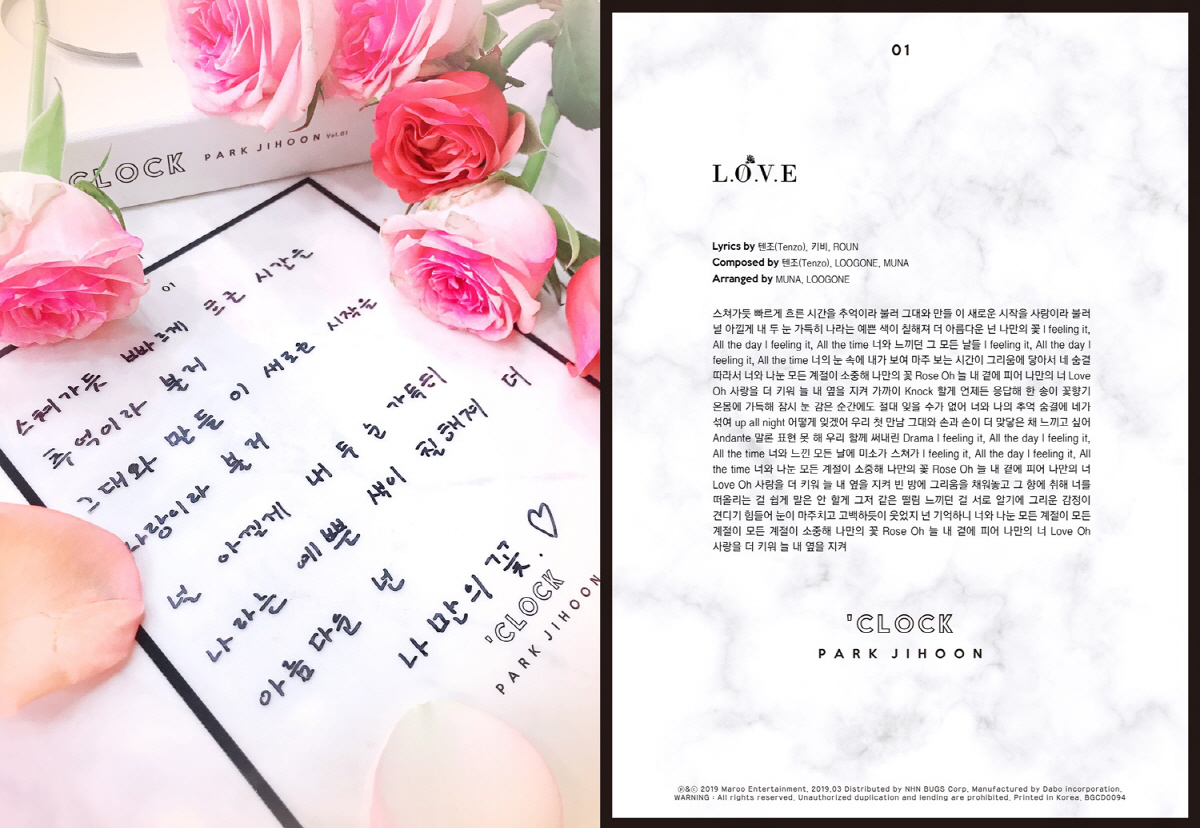 'CLOCK PARK JIHOON Vol.01
01
스쳐가듯 빠르게 흐른 시간을
추억이라 불러
그대와 만들 이 새로운 시작을
사랑이라 불러
널 아낄게 내 두 눈 가득히
나라는 예쁜 색이 칠해져 더
아름다운 넌
나만의 꽃.♡
'CLOCK
PARK JIHOON
01
L.O.V.E
Lyrics by 텐조(Tenzo), 키비, ROUN
Composed by 텐조(Tenzo), LOOGONE, MUNA
Arranged by MUNA, LOOGONE
스쳐가듯 빠르게 흐른 시간을 추억이라 불러 그대와 만들 이 새로운 시작을 사랑이라 불러
널 아낄게 내 두 눈 가득히 나라는 예쁜 색이 칠해져 더 아름다운 넌 나만의 꽃 I feeling it,
All the day I feeling it, All the time 너와 느끼던 그 모든 날들 I feeling it, All the day I
feeling it, All the time 너의 눈 속에 내가 보여 마주 보는 시간이 그리움에 닿아서 네 숨결
따라서 너와 나눈 모든 계절이 소중해 나만의 꽃 Rose Oh 늘 내 곁에 피어 나만의 너 Love
Oh 사랑을 더 키워 늘 내 옆을 지켜 가까이 Knock 할게 언제든 응답해 한 송이 꽃향기
온몸에 가득해 잠시 눈 감은 순간에도 절대 잊을 수가 없어 너와 나의 추억 숨결에 네가
섞여 up all night 어떻게 잊겠어 우리 첫 만남 그대와 손과 손이 더 맞닿은 채 느끼고 싶어
Andante 말론 표현 못 해 우리 함께 써내린 Drama I feeling it, All the day I feeling it,
All the time 너와 느낀 모든 날에 미소가 스쳐가 I feeling it, All the day I feeling it, All
the time 너와 나눈 모든 계절이 소중해 나만의 꽃 Rose Oh 늘 내 곁에 피어 나만의 너
Love Oh 사랑을 더 키워 늘 내 옆을 지켜 빈 방에 그리움을 채워놓고 그 향에 취해 너를
떠올리는 걸 쉽게 말은 안 할게 그저 같은 떨림 느끼던 걸 서로 알기에 그리운 감정이
견디기 힘들어 눈이 마주치고 고백하듯이 웃었지 넌 기억하니 너와 나눈 모든 계절이 모든
계절이 모든 계절이 소중해 나만의 꽃 Rose Oh 늘 내 곁에 피어 나만의 너 Love Oh
사랑을 더 키워 늘 내 옆을 지켜
'CLOCK
PARK JIHOON
Ⓟ&Ⓒ 2019 Maroo Entertainment. 2019.03 Distributed by NHN BUGS Corp. Manufactured by Dabo incorporation.
WARNING : All rights reserved. Unauthorized duplication and lending are prohibited. Printed in Korea. BGCD0094